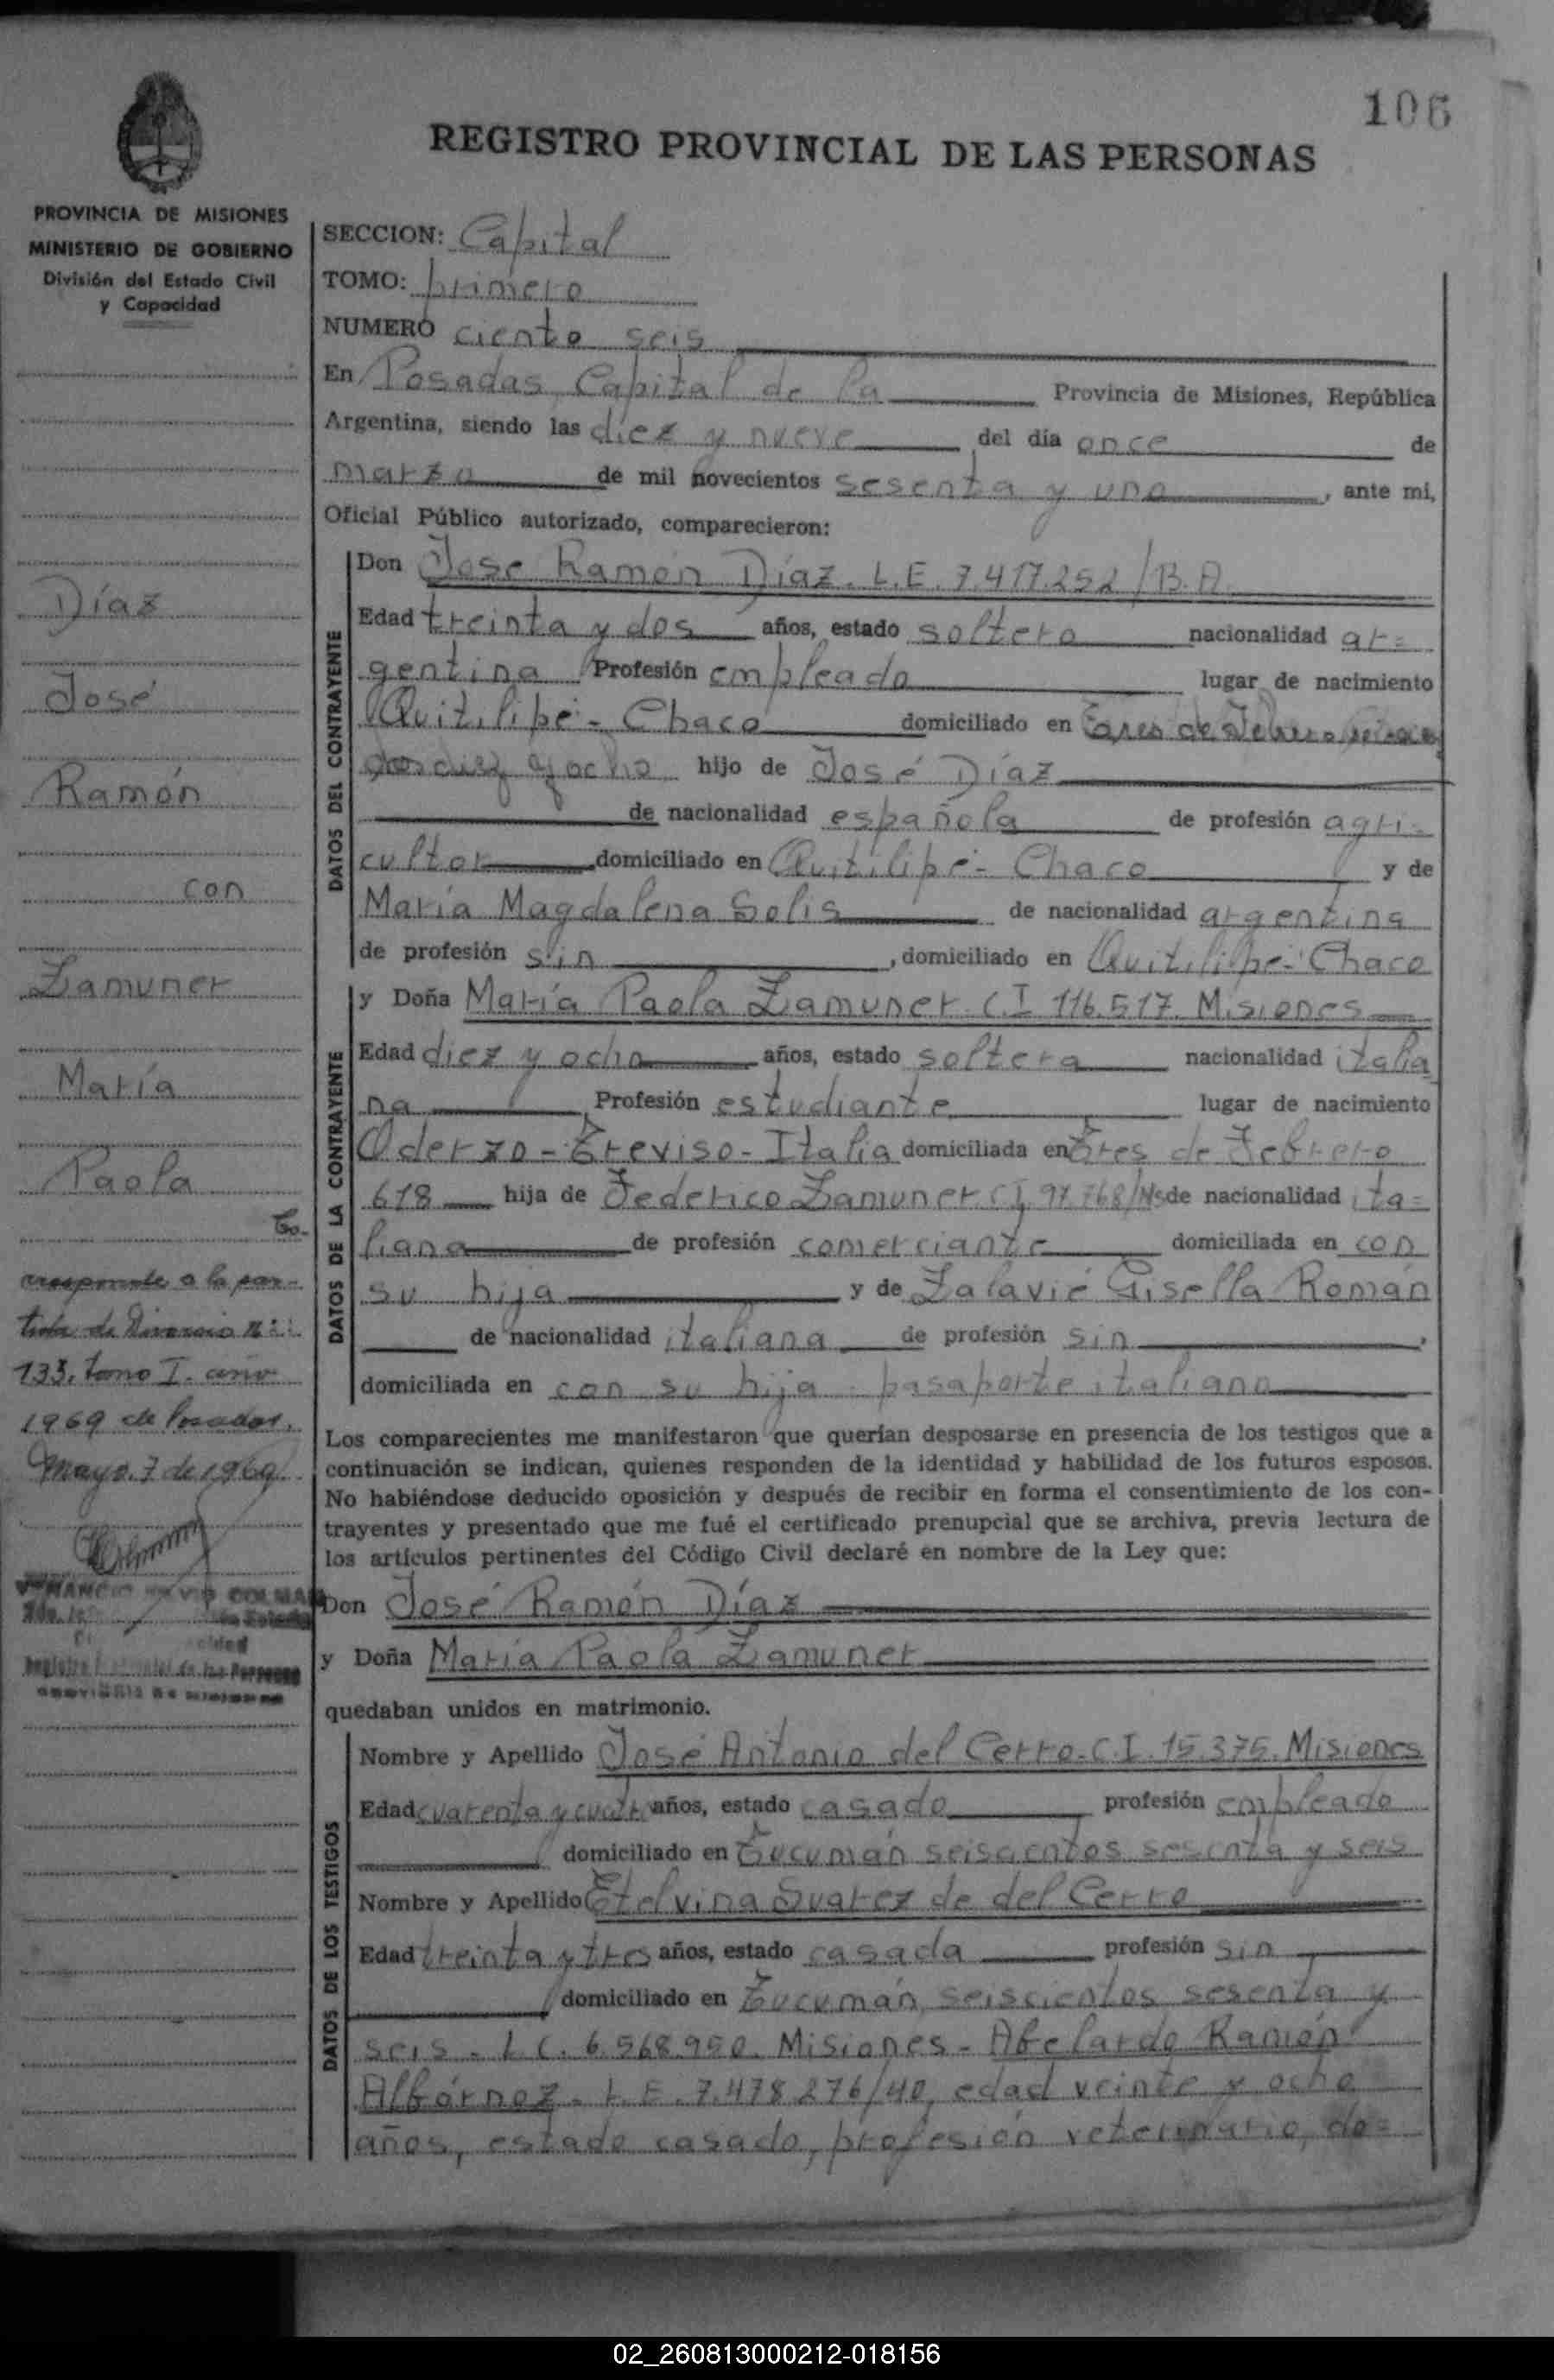 106
REGISTRO PROVINCIAL DE LAS PERSONAS
PROVINCIA DE MISIONES
MINISTERIO DE GOBIERNO
División del Estado Civil
y Capacidad
Díaz
José
Ramón
con
Zamuner
María
Paola
Co-
rresponde a la par-
tida de Divorcio Nº
133, tomo I. año
1969 de Posadas.
Mayo 7 de 1969
COLMAN
Registro Provincial de las Personas
SECCION: Capital
TOMO: primero
NUMERO ciento seis
En Posadas, Capital de la Provincia de Misiones, República
Argentina, siendo las diez y nueve del día once de
marzo de mil novecientos sesenta y uno, ante mi,
Oficial Público autorizado, comparecieron:
DATOS DEL CONTRAYENTE
Don José Ramón Díaz. L.E. 7.417.252/B.A.
Edad treinta y dos años, estado soltero nacionalidad ar=
gentina Profesión empleado lugar de nacimiento
Quitilipi - Chaco domiciliado en Tres de Febrero
dos diez y ocho hijo de José Díaz
de nacionalidad española de profesión agri-
cultor domiciliado en Quitilipi - Chaco y de
María Magdalena Solis de nacionalidad argentina
de profesión sin, domiciliado en Quitilipi - Chaco
DATOS DE LA CONTRAYENTE
y Doña María Paola Zamuner. C.I 116.517. Misiones
Edad diez y ocho años, estado soltera nacionalidad italia
na Profesión estudiante lugar de nacimiento
Oderzo - Treviso - Italia domiciliada en Tres de Febrero
618 hija de Federico Zamuner C.I. 97.768/Ms de nacionalidad ita=
liana de profesión comerciante domiciliada en con
su hija y de Zalavié Gisella Román
de nacionalidad italiana de profesión sin,
domiciliada en con su hija - pasaporte italiano
Los comparecientes me manifestaron que querían desposarse en presencia de los testigos que a
continuación se indican, quienes responden de la identidad y habilidad de los futuros esposos.
No habiéndose deducido oposición y después de recibir en forma el consentimiento de los con-
trayentes y presentado que me fué el certificado prenupcial que se archiva, previa lectura de
los artículos pertinentes del Código Civil declaré en nombre de la Ley que:
Don José Ramón Díaz
y Doña María Paola Zamuner
quedaban unidos en matrimonio.
DATOS DE LOS TESTIGOS
Nombre y Apellido José Antonio del Cerro. C.I. 15.375. Misiones
Edad cuarenta y cuatro años, estado casado profesión empleado
domiciliado en Tucumán seiscientos sesenta y seis
Nombre y Apellido Etelvina Suarez de del Cerro
Edad treinta y tres años, estado casada profesión sin
domiciliado en Tucumán, seiscientos sesenta y
seis - L.C. 6.568.950. Misiones - Abelardo Ramón
Albórnoz - L.E. 7.478.276/40, edad veinte y ocho
años, estado casado, profesión veterinario, do=
02_260813000212-018156